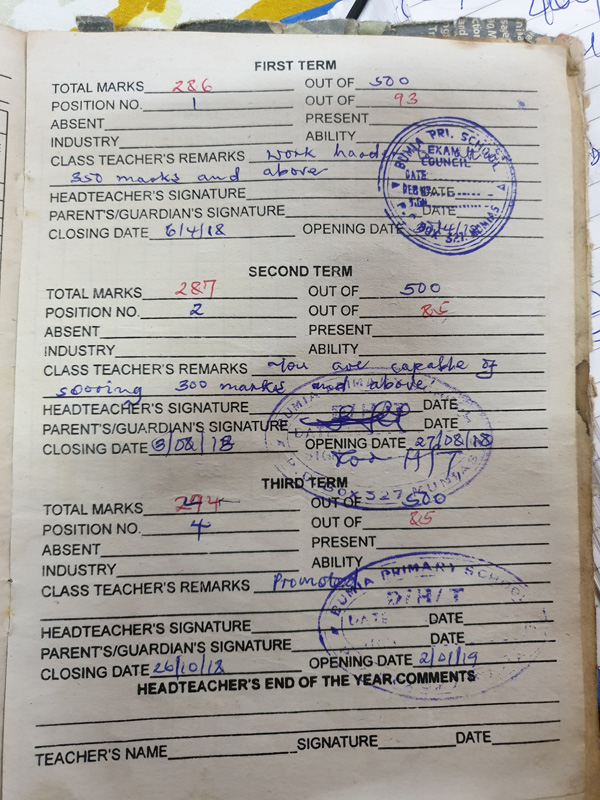 FIRST TERM
TOTAL MARKS 286 OUT OF 500
POSITION NO. 1 OUT OF 93
ABSENT PRESENT
INDUSTRY ABILITY
CLASS TEACHER'S REMARKS Work hard
350 marks and above
HEADTEACHER'S SIGNATURE DATE
PARENT'S/GUARDIAN'S SIGNATURE DATE
CLOSING DATE 6/4/18 OPENING DATE
BUMIA PRI. SCHOOL
EXAM
COUNCIL
DATE
SECOND TERM
TOTAL MARKS 287 OUT OF 500
POSITION NO. 2 OUT OF 85
ABSENT PRESENT
INDUSTRY ABILITY
CLASS TEACHER'S REMARKS You are capable of
scoring 300 marks and above
HEADTEACHER'S SIGNATURE DATE
PARENT'S/GUARDIAN'S SIGNATURE DATE
CLOSING DATE 3/08/18 OPENING DATE 27/08/18
For H/T
P.O. BOX 327
THIRD TERM
TOTAL MARKS OUT OF 500
POSITION NO. 4 OUT OF 85
ABSENT PRESENT
INDUSTRY ABILITY
CLASS TEACHER'S REMARKS Promoted
BUMIA PRIMARY SCHOOL
D/H/T
DATE
HEADTEACHER'S SIGNATURE DATE
PARENT'S/GUARDIAN'S SIGNATURE DATE
CLOSING DATE 26/10/18 OPENING DATE 2/01/19
HEADTEACHER'S END OF THE YEAR COMMENTS
TEACHER'S NAME SIGNATURE DATE